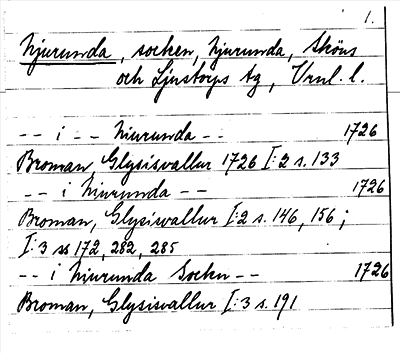 1.
Njurunda, socken, Njurunda, Sköns
och Ljustorps tg, Vrnl. l.
-- i -- Njurunda -- 1726
Broman, Glysisvallur 1726 I:2 s. 133
-- i Njurunda -- 1726
Broman, Glysisvallur I:2 s. 146, 156;
I:3 ss 172, 282, 285
-- i Njurunda Sockn -- 1726
Broman, Glysisvallur I:3 s. 191